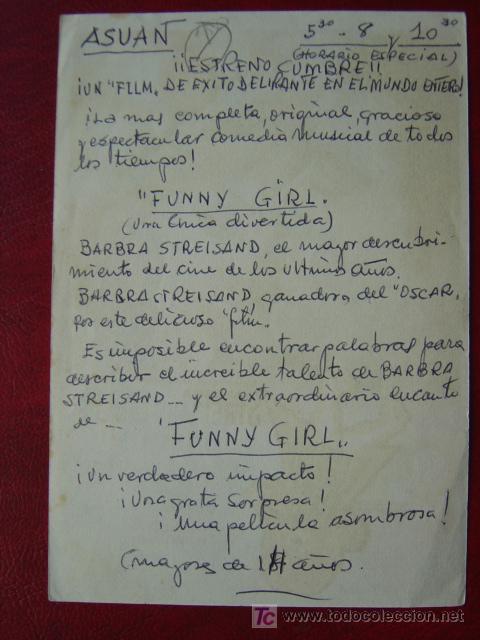 ASUAN 5³⁰ - 8 y 10³⁰
(HORARIO ESPECIAL)
¡¡ESTRENO CUMBRE!!
¡UN "FILM" DE EXITO DELIRANTE EN EL MUNDO ENTERO!
¡La mas completa, original, gracioso
y espectacular comedia musical de todos
los tiempos!
"FUNNY GIRL.
(Una chica divertida)
BARBRA STREISAND, el mayor descubri-
miento del cine de los ultimos años.
BARBRA STREISAND, ganadora del "OSCAR"
por este delicioso "film".
Es imposible encontrar palabras para
describir el increible talento de BARBRA
STREISAND... y el extraordinario encanto
de...
"FUNNY GIRL"
¡Un verdadero impacto!
¡Una grata sorpresa!
¡Una película asombrosa!
(mayores de años.
TC www.todocoleccion.net